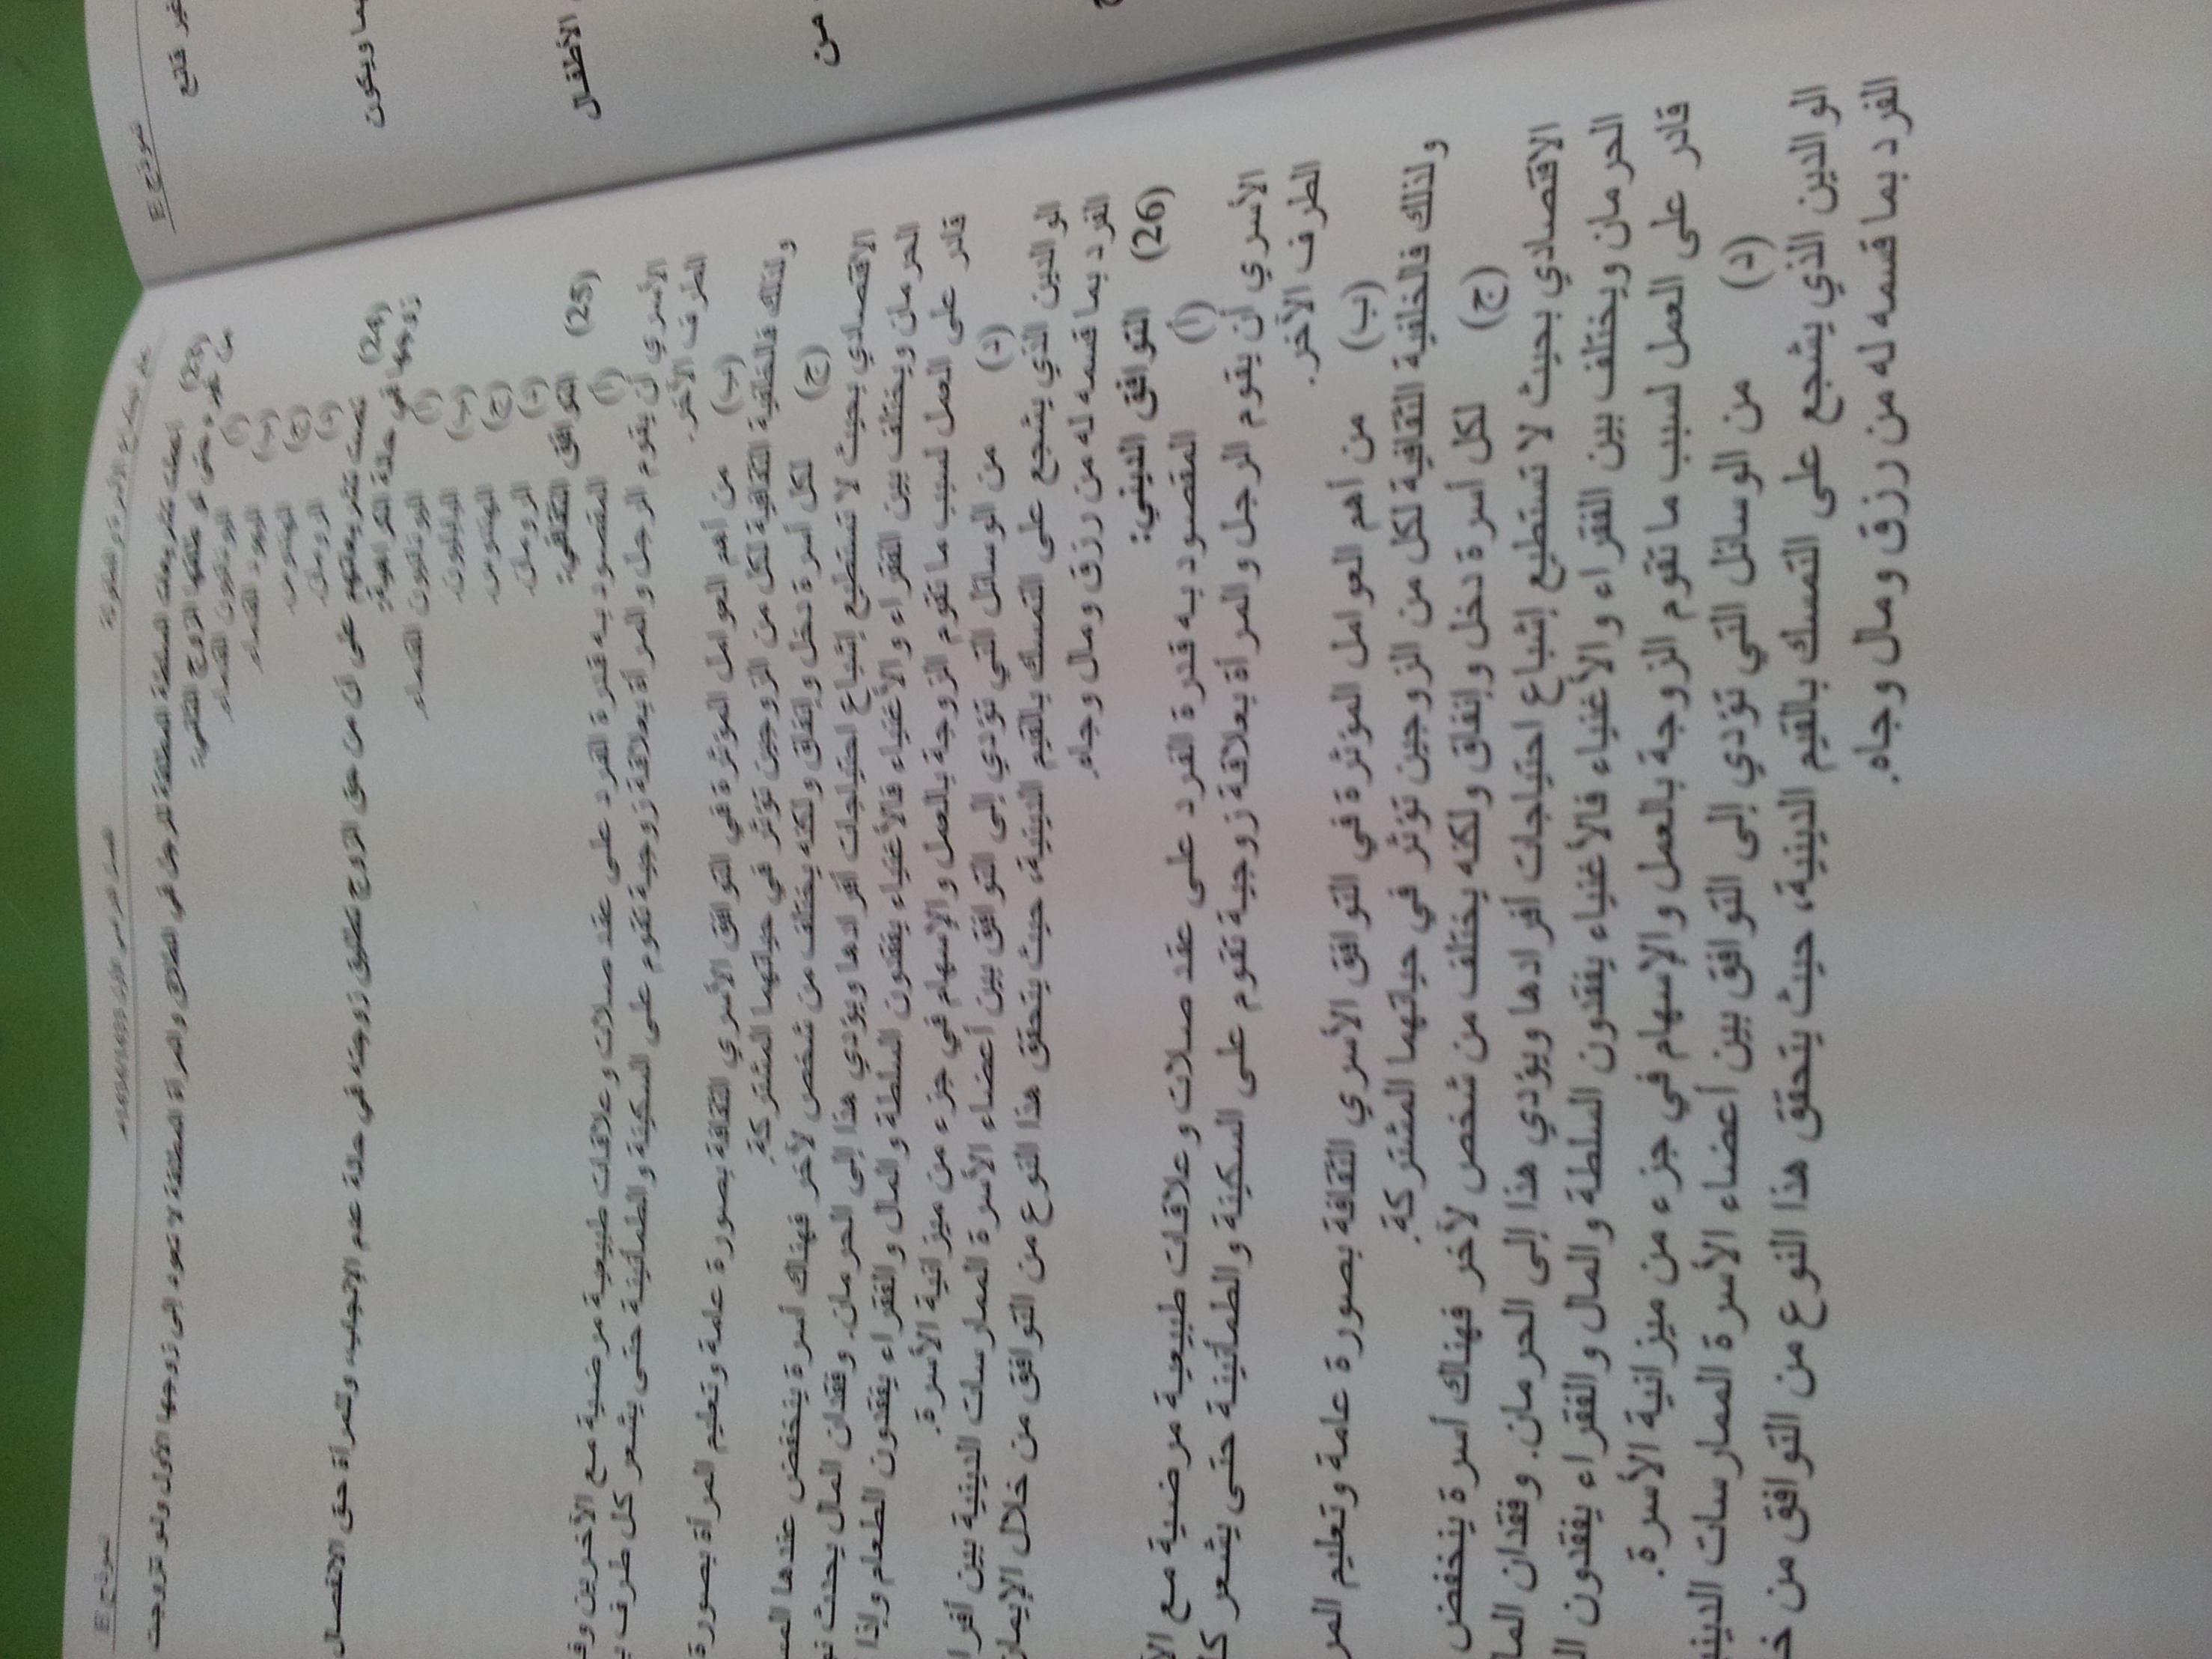 علم اجتماع الأسرة والطفولة الفصل الدراسي الأول 1434/1433هـ نموذج E
(23) أعطت تشريعات السلطة المطلقة للرجل في الطلاق والمرأة المطلقة لا تعود إلى زوجها الأول ولو تزوجت
من غيره حتى لو طلقها الزوج الثاني:
(أ) اليونانيون القدماء.
(ب) اليهود القدماء.
(ج) الهندوس.
(د) الرومان.
(24) نصت تشريعاتهم على أن من حق الزوج تطليق زوجته في حالة عدم الإنجاب، وللمرأة حق الانفصال
زوجها في حالة الكراهية:
(أ) اليونانيون القدماء.
(ب) البابليون.
(ج) الهندوس.
(د) الرومان.
(25) التوافق الثقافي:
(أ) المقصود به قدرة الفرد على عقد صلات وعلاقات طبيعية مرضية مع الآخرين
الأسري أن يقوم الرجل والمرأة بعلاقة زوجية تقوم على السكينة والطمأنينة حتى يشعر كل طرف
الطرف الآخر.
(ب) من أهم العوامل المؤثرة في التوافق الأسري الثقافة بصورة عامة وتعليم المرأة بصورة
ولذلك فالخلفية الثقافية لكل من الزوجين تؤثر في حياتهما المشتركة.
(ج) لكل أسرة دخل وإنفاق ولكنه يختلف من شخص لآخر فهناك أسرة ينخفض عندها
الاقتصادي بحيث لا تستطيع إشباع احتياجات أفرادها ويؤدي هذا إلى الحرمان. وفقدان المال يحدث
الحرمان ويختلف بين الفقراء والأغنياء فالأغنياء يفقدون السلطة والمال والفقراء يفقدون الطعام وإذا
قادر على العمل لسبب ما تقوم الزوجة بالعمل والإسهام في جزء من ميزانية الأسرة.
(د) من الوسائل التي تؤدي إلى التوافق بين أعضاء الأسرة الممارسات الدينية بين
الوالدين الذي يشجع على التمسك بالقيم الدينية، حيث يتحقق هذا النوع من التوافق من خلال
الفرد بما قسمه له من رزق ومال وجاه.
(26) التوافق الديني:
(أ) المقصود به قدرة الفرد على عقد صلات وعلاقات طبيعية مرضية مع
الأسري أن يقوم الرجل والمرأة بعلاقة زوجية تقوم على السكينة والطمأنينة حتى يشعر
الطرف الآخر.
(ب) من أهم العوامل المؤثرة في التوافق الأسري الثقافة بصورة عامة وتعليم
ولذلك فالخلفية الثقافية لكل من الزوجين تؤثر في حياتهما المشتركة.
(ج) لكل أسرة دخل وإنفاق ولكنه يختلف من شخص لآخر فهناك أسرة ينخفض
الاقتصادي بحيث لا تستطيع إشباع احتياجات أفرادها ويؤدي هذا إلى الحرمان. وفقدان
الحرمان ويختلف بين الفقراء والأغنياء فالأغنياء يفقدون السلطة والمال والفقراء يفقدون
قادر على العمل لسبب ما تقوم الزوجة بالعمل والإسهام في جزء من ميزانية الأسرة.
(د) من الوسائل التي تؤدي إلى التوافق بين أعضاء الأسرة الممارسات
الوالدين الذي يشجع على التمسك بالقيم الدينية، حيث يتحقق هذا النوع من التوافق من
الفرد بما قسمه له من رزق ومال وجاه.
نموذج E
غير
ويكون
الأطفال
من